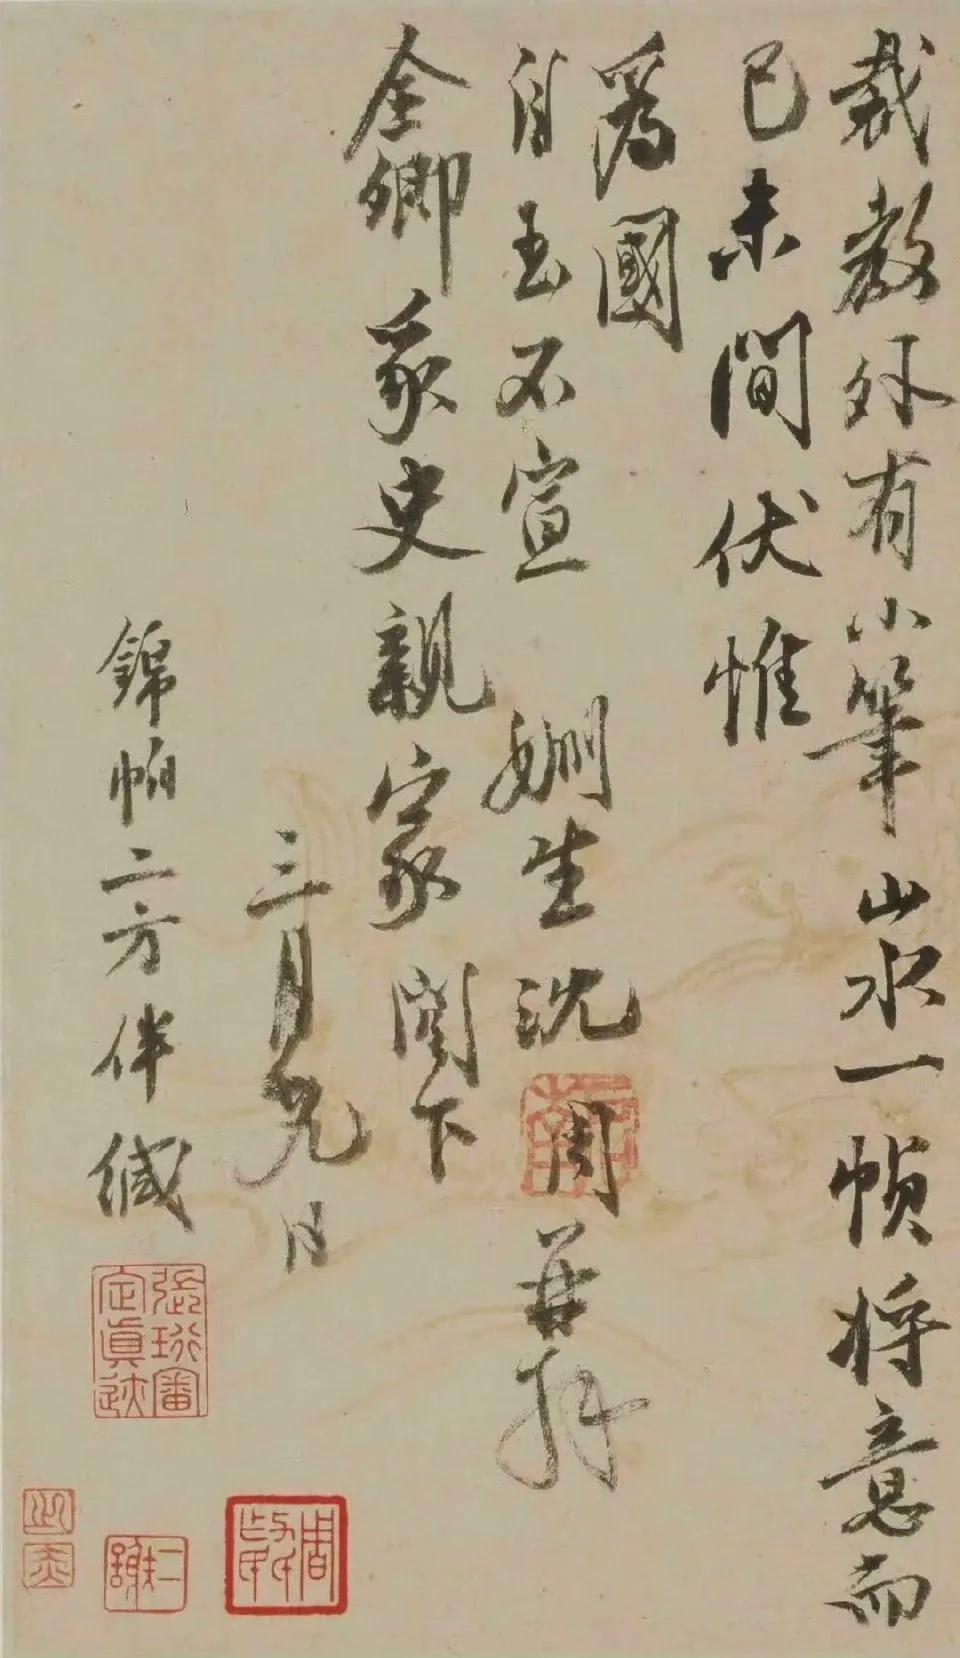 裁教外有小筆山水一幀將意而
已未間伏惟
爲國
自玉不宣 姻生沈周再拜
全卿豸史親家閣下
三月九日
錦帕二方伴緘
啓南
張珩審定真迹